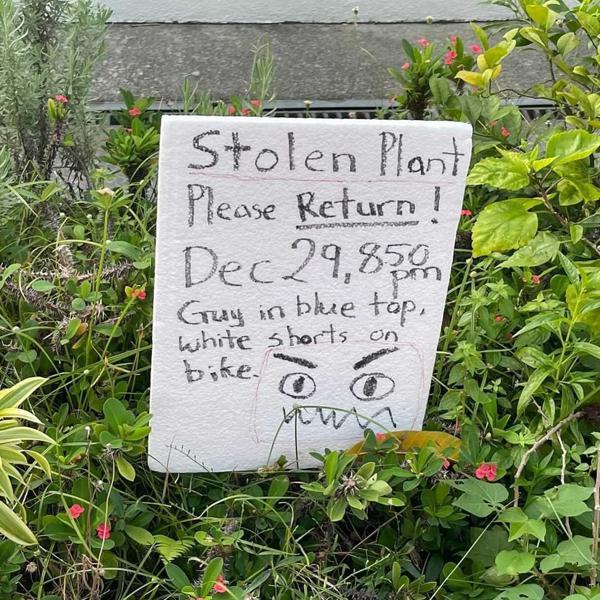 Stolen Plant
Please Return!
Dec 29, 850
pm
Guy in blue top,
white shorts on
bike.